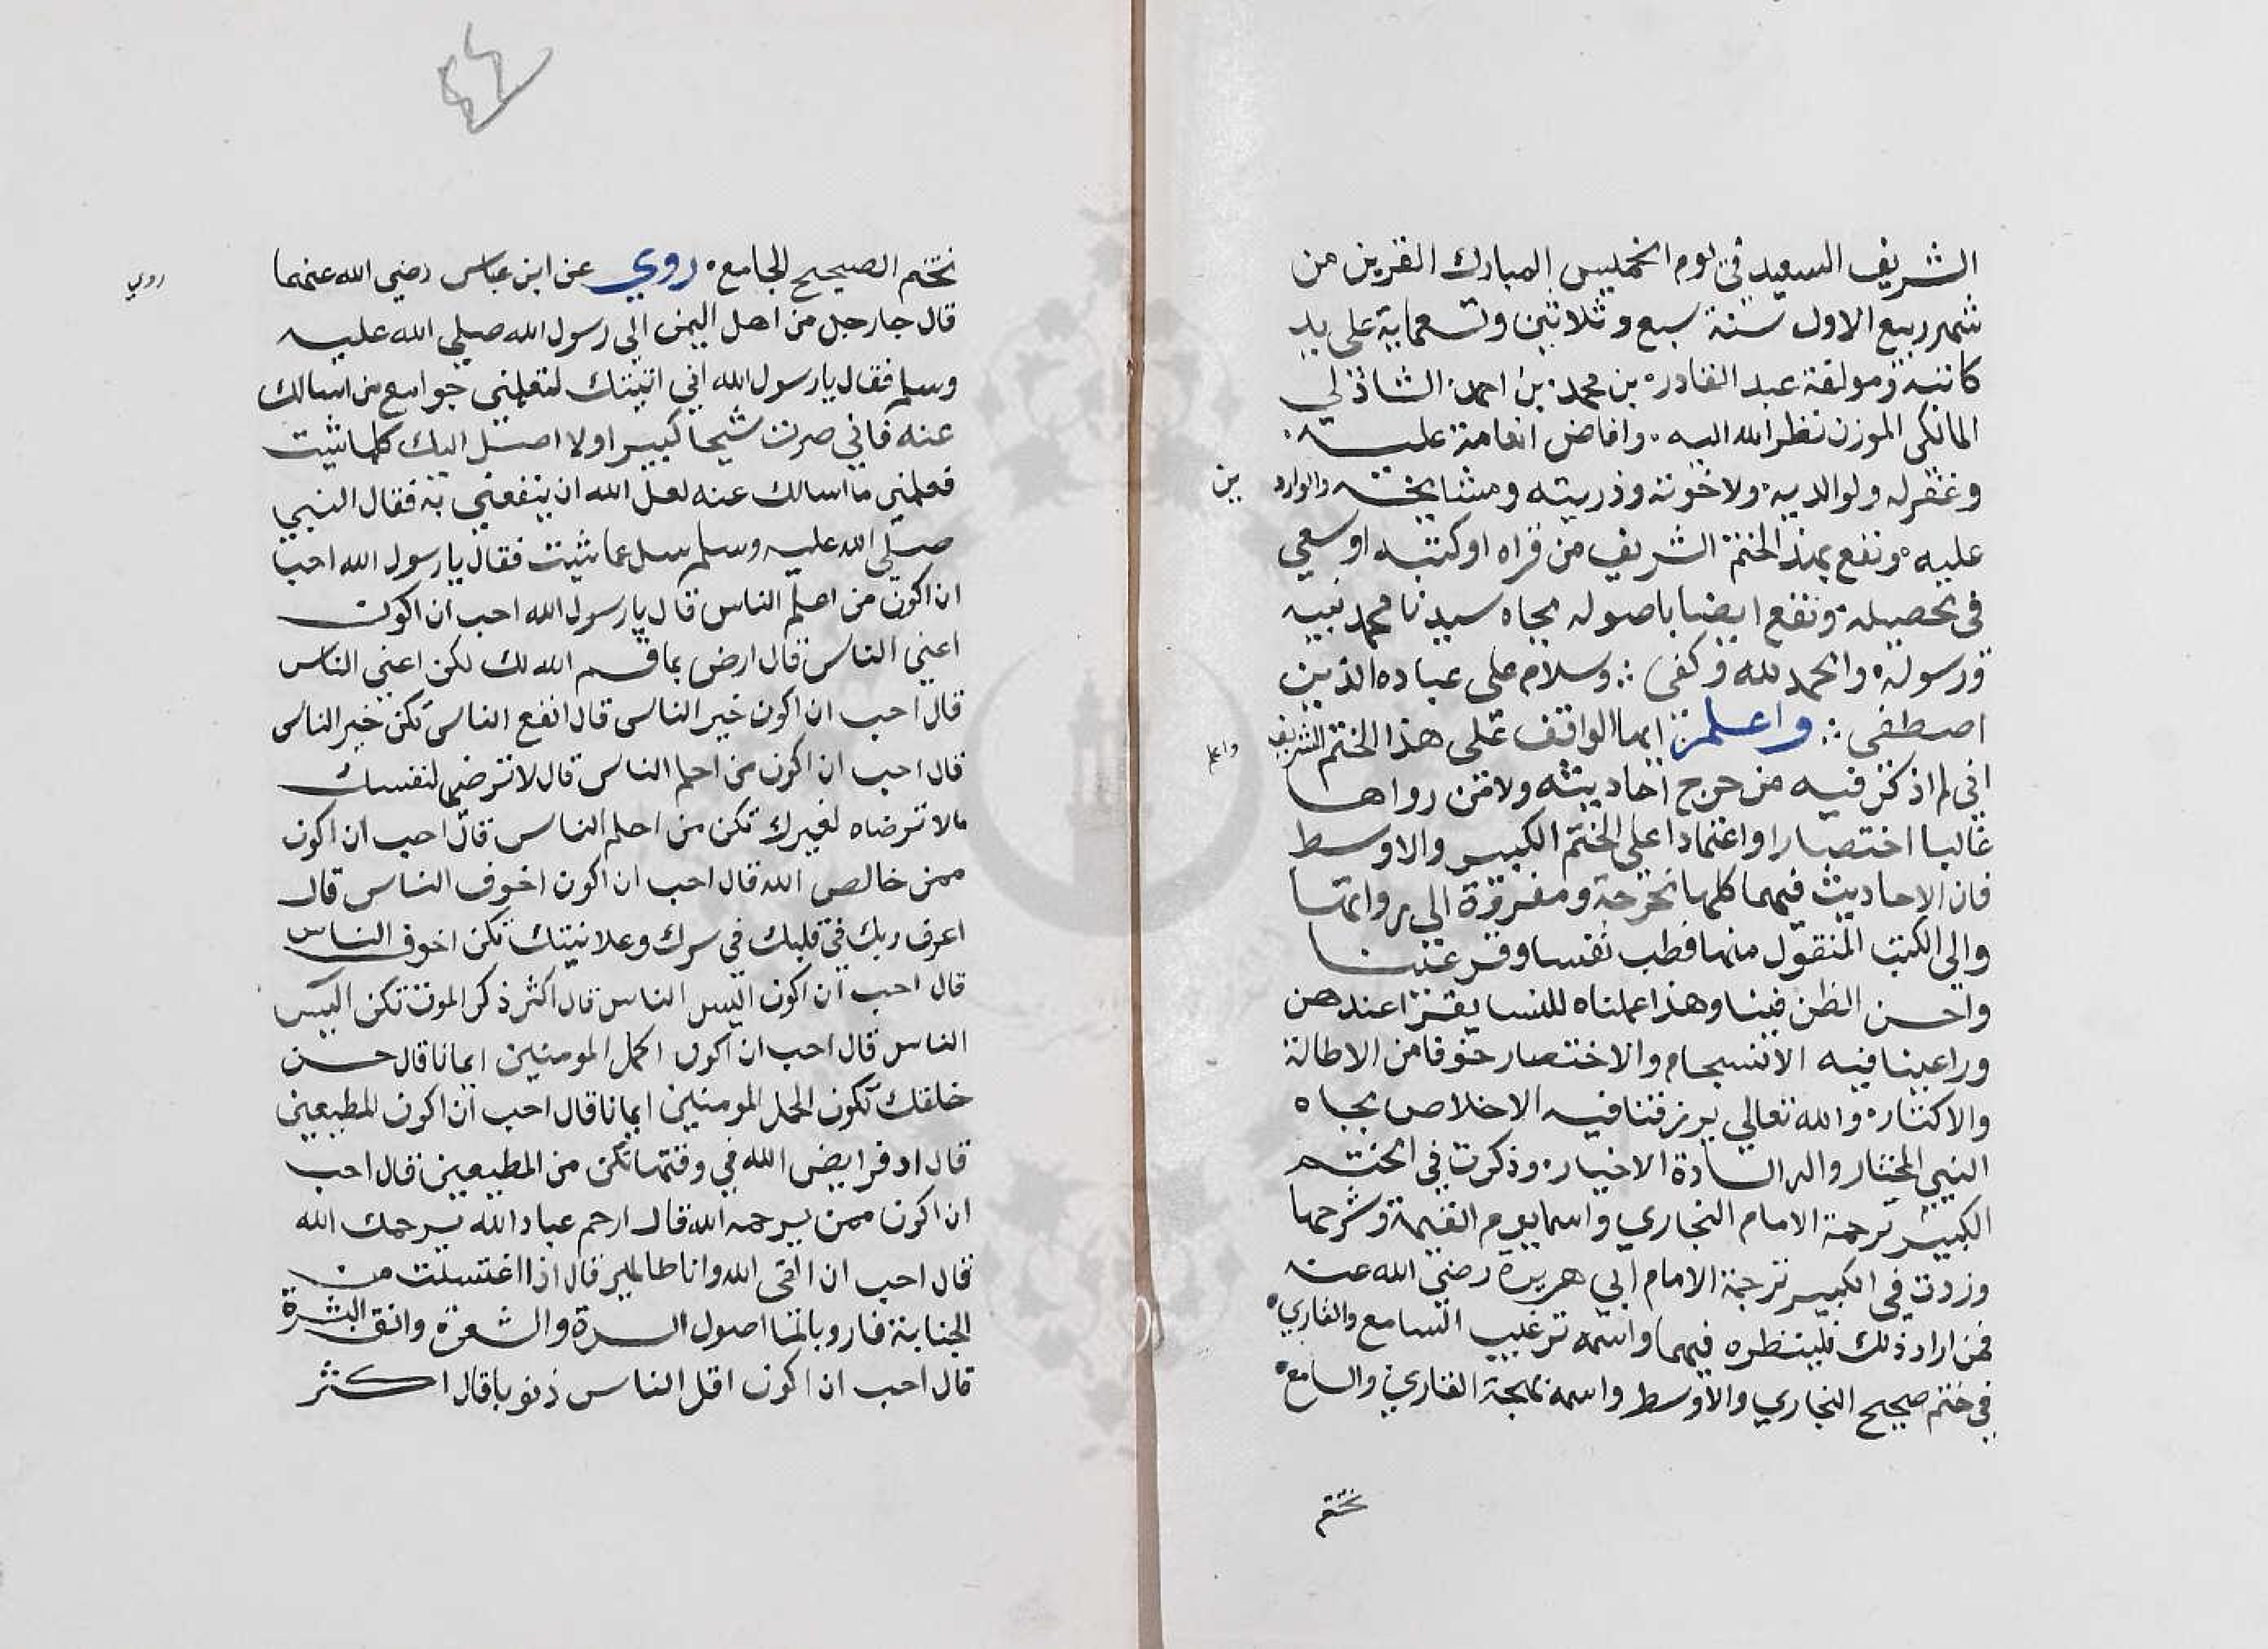 الشريف السعيد في يوم الخميس المبارك القرين من
شهر ربيع الاول سنة سبع وثلاثين وتسعماية على يد
كاتبه ومولفه عبد القادر بن محمد بن احمد الشاذلي
المالكي الموذن نظر الله اليه وافاض انعامه عليه
وغفر له ولوالديه ولاخوته وذريته ومشايخه والواردين
عليه ونفع بهذا الختم الشريف من قراه او كتبه او سعي
في تحصيله ونفع ايضا باصوله بجاه سيدنا محمد نبيه
ورسوله والحمد لله وكفى وسلام على عباده الذين
اصطفى واعلم ايها الواقف على هذا الختم الشريف
واعلم
اني لم اذكر فيه من خرج احاديثه ولا من رواها
غالبا اختصارا واعتمادا على الختم الكبير والاوسط
فان الاحاديث فيهما كلها مخرجة ومفروزة الى رواتها
والى الكتب المنقول منها فطب نفسا وقر عينا
واحسن الظن فينا وهذا عملناه للنسا يقرا عندهن
وراعينا فيه الانسجام والاختصار خوفا من الاطالة
والاكثار والله تعالي يرزقنا فيه الاخلاص بجاه
النبي المختار واله السادة الاخيار وذكرت في الختم
الكبير ترجمة الامام البخاري واسما يوم القيمة وشرحها
وزدت في الكبير ترجمة الامام ابي هريرة رضي الله عنه
فمن اراد ذلك فلينظره فيهما واسمه ترغيب السامع والقاري
في ختم صحيح البخاري والاوسط واسمه بهجة القاري والسامع
بختم
بختم الصحيح الجامع روي عن ابن عباس رضي الله عنهما
روي
قال جا رجل من اهل اليمن الى رسول الله صلي الله عليه
وسلم فقال يا رسول الله اني اتيتك لتعلمني جوامع من اسالك
عنه فاني صرت شيخا كبيرا ولا اصل اليك كلما شيت
فعلمني ما اسالك عنه لعل الله ان ينفعني به فقال النبي
صلي الله عليه وسلم سل عما شيت فقال يا رسول الله احب
ان اكون من اعلم الناس قال يا رسول الله احب ان اكون
اغني الناس قال ارض بما قسم الله لك تكن اغني الناس
قال احب ان اكون خير الناس قال انفع الناس تكن خير الناس
قال احب ان اكون من احلم الناس قال لا ترضى لنفسك
ما لا ترضاه لغيرك تكن من احلم الناس قال احب ان اكون
ممن خالص الله قال احب ان اكون اخوف الناس قال
اعرف ربك في قلبك في سرك وعلانيتك تكن اخوف الناس
قال احب ان اكون اكيس الناس قال اكثر ذكر الموت تكن اكيس
الناس قال احب ان اكون اكمل المومنين ايمانا قال حسن
خلقك تكون اكمل المومنين ايمانا قال احب ان اكون المطيعين
قال اد فرايض الله في وقتها تكن من المطيعين قال احب
ان اكون ممن يرحمه الله قال ارحم عباد الله يرحمك الله
قال احب ان القى الله وانا طاهر قال اذا اغتسلت من
الجنابة فارو بالما اصول السرة والشعرة وانق البشرة
قال احب ان اكون اقل الناس ذنوبا قال اكثر